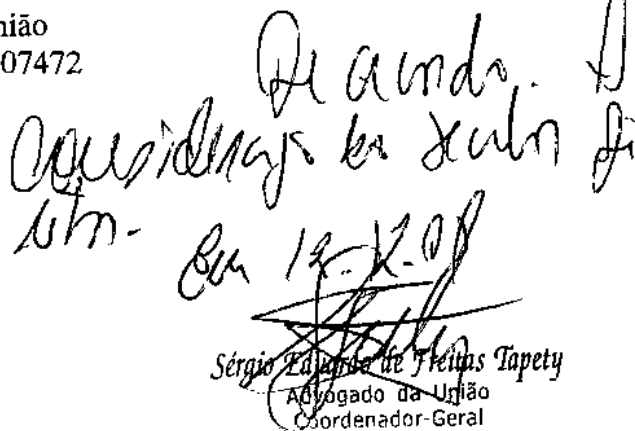 nião
07472
De acordo. À
Consideração do Senhor Di
retor.
Em 12.12.08
Sérgio Eduardo de Freitas Tapety
Advogado da União
Coordenador-Geral